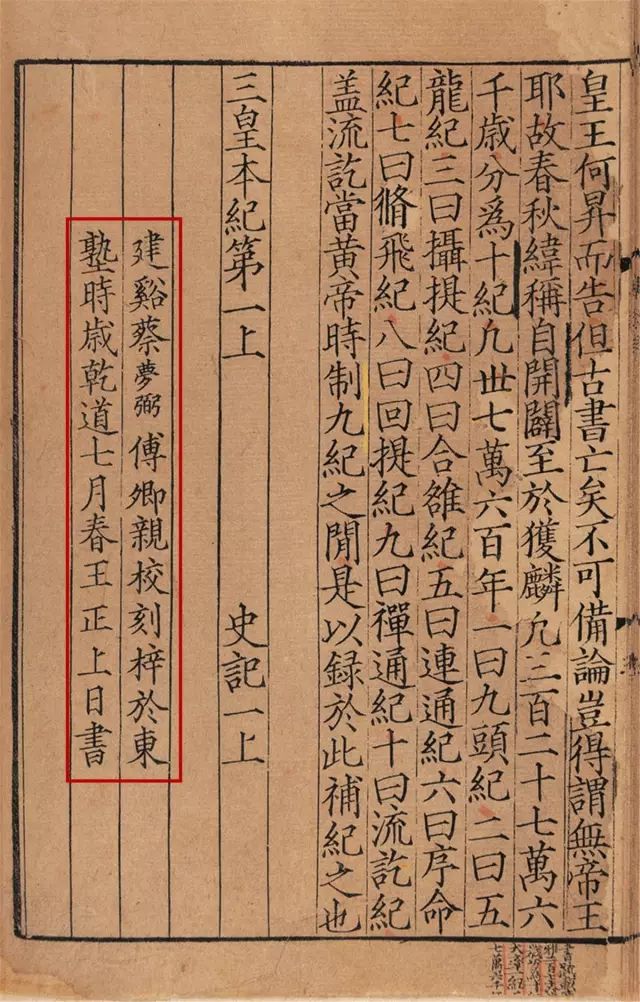 皇王何昇而告但古書亡矣不可備論豈得謂無帝王
耶故春秋緯稱自開闢至於獲麟凢三百二十七萬六
千歳分爲十紀凢丗七萬六百年一曰九頭紀二曰五
龍紀三曰攝提紀四曰合雒紀五曰連通紀六曰序命
紀七曰脩飛紀八曰回提紀九曰禪通紀十曰流訖紀
盖流訖當黄帝時制九紀之閒是以録於此補紀之也
三皇本紀第一上 史記一上
建谿蔡夢弼傅卿親校刻梓於東
塾時歳乾道七月春王正上日書